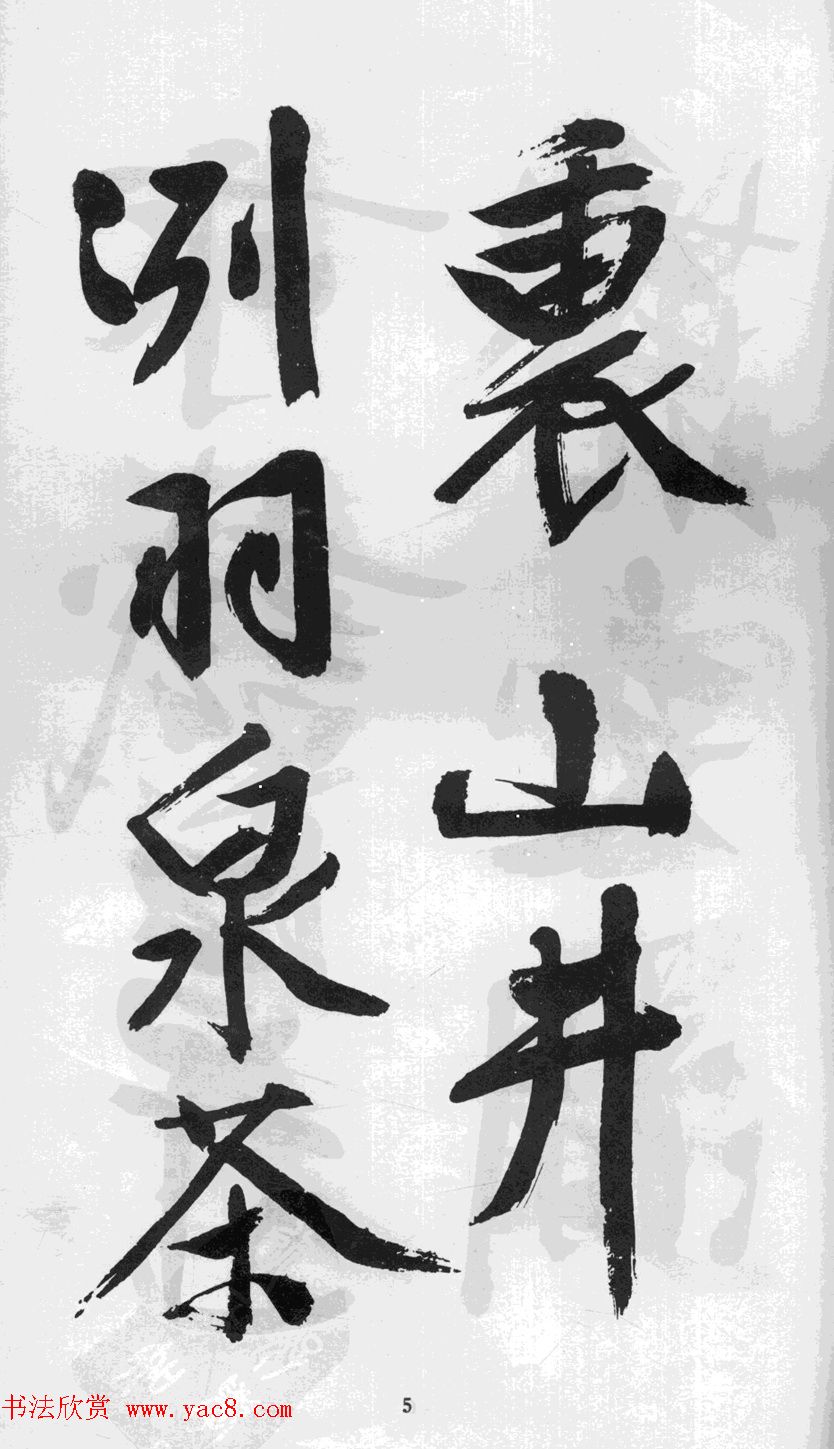 裏山井
冽羽泉茶
5
书法欣赏 www.yac8.com